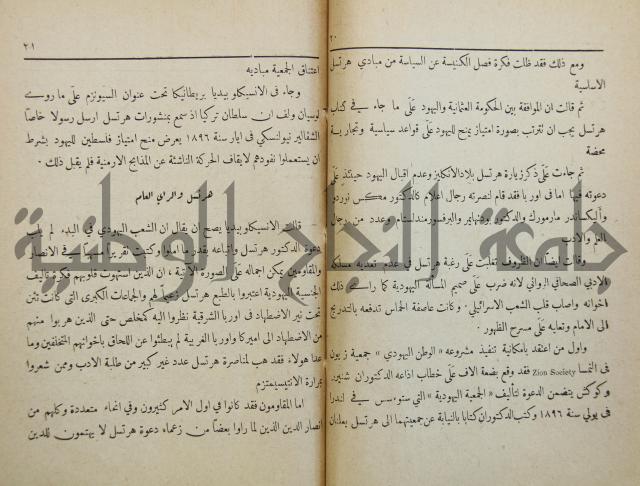 ٢٠
ومع ذلك فقد ظلت فكرة فصل الكنيسة عن السياسة من مبادي هرتسل
الاساسية
ثم قالت ان الموافقة بين الحكومة العثمانية واليهود علَى ما جاء في كتاب
هرتسل يجب ان تترتب بصورة امتياز يمنح لليهود علَى قواعد سياسية وتجارية
محضة
ثم جاءت علَى ذكر زيارة هرتسل بلاد الانكليز وعدم اقبال اليهود حينئذ علَى
دعوته فيها اما في اوربا فقد قام لنصرته رجال اعلام كالدكتور مكس نوردو
واليكساندر مارمورك والدكتور بودنهايمر والبرفسور مندلستام وعدد من رجال
العلم والادب
وقالت ايضاً ان الظروف تغلبت علَى رغبة هرتسل في عدم تعديه مسلك
الادبي الصحافي الروائي لانه ضرب علَى صميم المسألة اليهودية كما راسخ ذلك
اخوانه واصاب قلب الشعب الاسرائيلي. وكانت عاصفة الحماس تدفعه بالتدريج
الى الامام وتعليه علَى مسرح الظهور.
واول من اعتقد بامكانية تنفيذ مشروعه «الوطن اليهودي» جمعية زيون
في النمسا Zion Society فقد وقع بضعة الاف علَى خطاب اذاعه الدكتوران شنيرر
وكوكش يتضمن الدعوة لتأليف «الجمعية اليهودية» التي ستوسس في لندرا
في يولي سنة ١٨٩٦ وكتب الدكتوران كتابا بالنيابة عن جمعيتهما الى هرتسل يعلنان
٢١
اعتناق الجمعية مباديه
وجاء في الانسيكلوبيديا بريطانيكا تحت عنوان السيونزم علَى ما روے
لوسيان ولف ان سلطان تركيا اذ سمع بمنشورات هرتسل ارسل رسولا خاصاً
الشفالير نيولنسكي في ايار سنة ١٨٩٦ يعرض منح امتياز فلسطين لليهود بشرط
ان يستعملوا نفوذهم لايقاف الحركة الناشئة عن المذابح الارمنية فلم يقبل ذلك.
هرتسل والراي العام
قالت الانسيكلوبيديا يصح ان يقال ان الشعب اليهودي في البدء لم يلب
دعوة الدكتور هرتسل واتباعه بقدر ما املوا وكتبت تقريراً في الانصار
والمقاومين يمكن اجماله علَى الصورة الاتية: ان الذين استهوت قلوبهم فكرة تاليف
الجنسية اليهودية اعتبروا بالطبع هرتسل زعيماً لهم والجماعات الكبرى التي كانت تئن
تحت نير الاضطهاد في اوربا الشرقية نظروا اليه كمخلص حتى الذين هربوا منهم
من الاضطهاد الى اميركا واوربا الغربية لم يبطئوا عن اللحاق باخوانهم المتخلفين وما
عدا هولاء فقد هب لمناصرة هرتسل عدد غير كبير من طلبة الادب وممن شعروا
بمرارة الانتيسيمتزم
اما المقاومون فقد كانوا في اول الامر كثيرون وفي انحاء متعددة وكلهم من
انصار الدين الذين لما راوا بعضاً من زعماء دعوة هرتسل لا يهتمون للدين
جامعة النجاح الوطنية